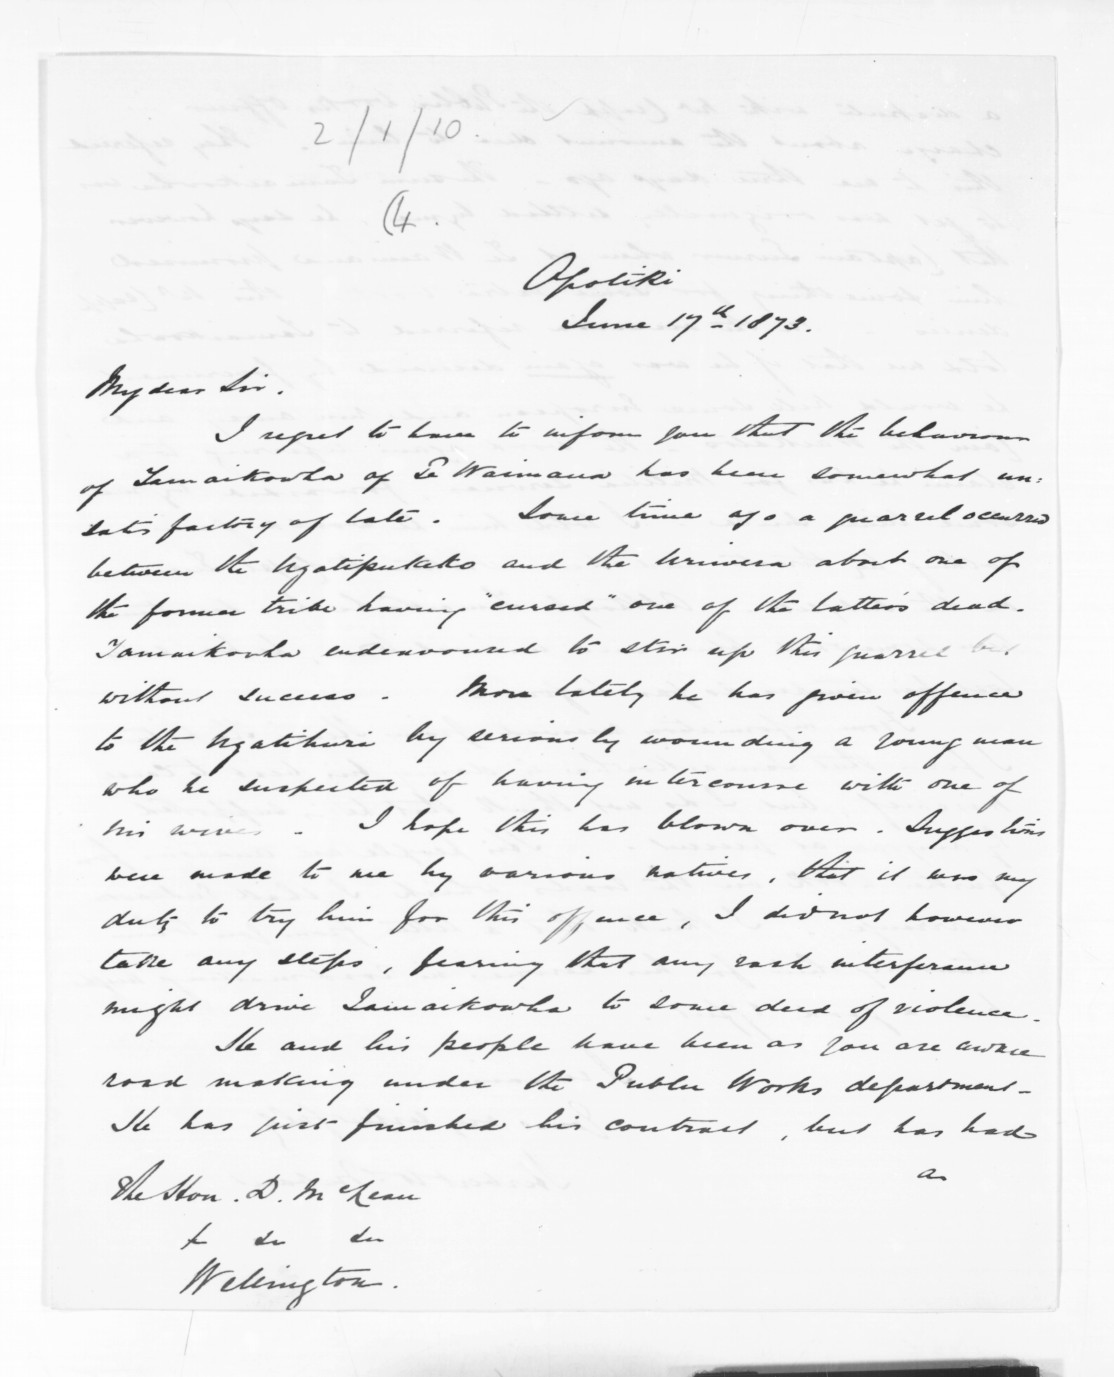 2/1/10.
(4.
Opotiki
June 17th 1873.
My dear Sir.
I regret to have to inform you that the behaviour
of Tamaikowha of Te Waimana has been somewhat un:
satisfactory of late. Some time ago a quarrel occurred
between the Ngatipukeko and the Uriwera about one of
the former tribe having "cursed" one of the latter's dead.
Tamaikowha endeavoured to stir up this quarrel but
without success. More lately he has given offence
to the Ngatihuri by seriously wounding a young man
who he suspected of having intercourse with one of
his wives. I hope this has blown over. Suggestions
were made to me by various natives, that it was my
duty to try him for this offence, I did not however
take any steps, fearing that any rash interference
might drive Tamaikowha to some deed of violence.
He and his people have been as you are aware
road making under the Public Works department.
He has just finished his contract, but has had
a
The Hon. D. McLean
Wellington.